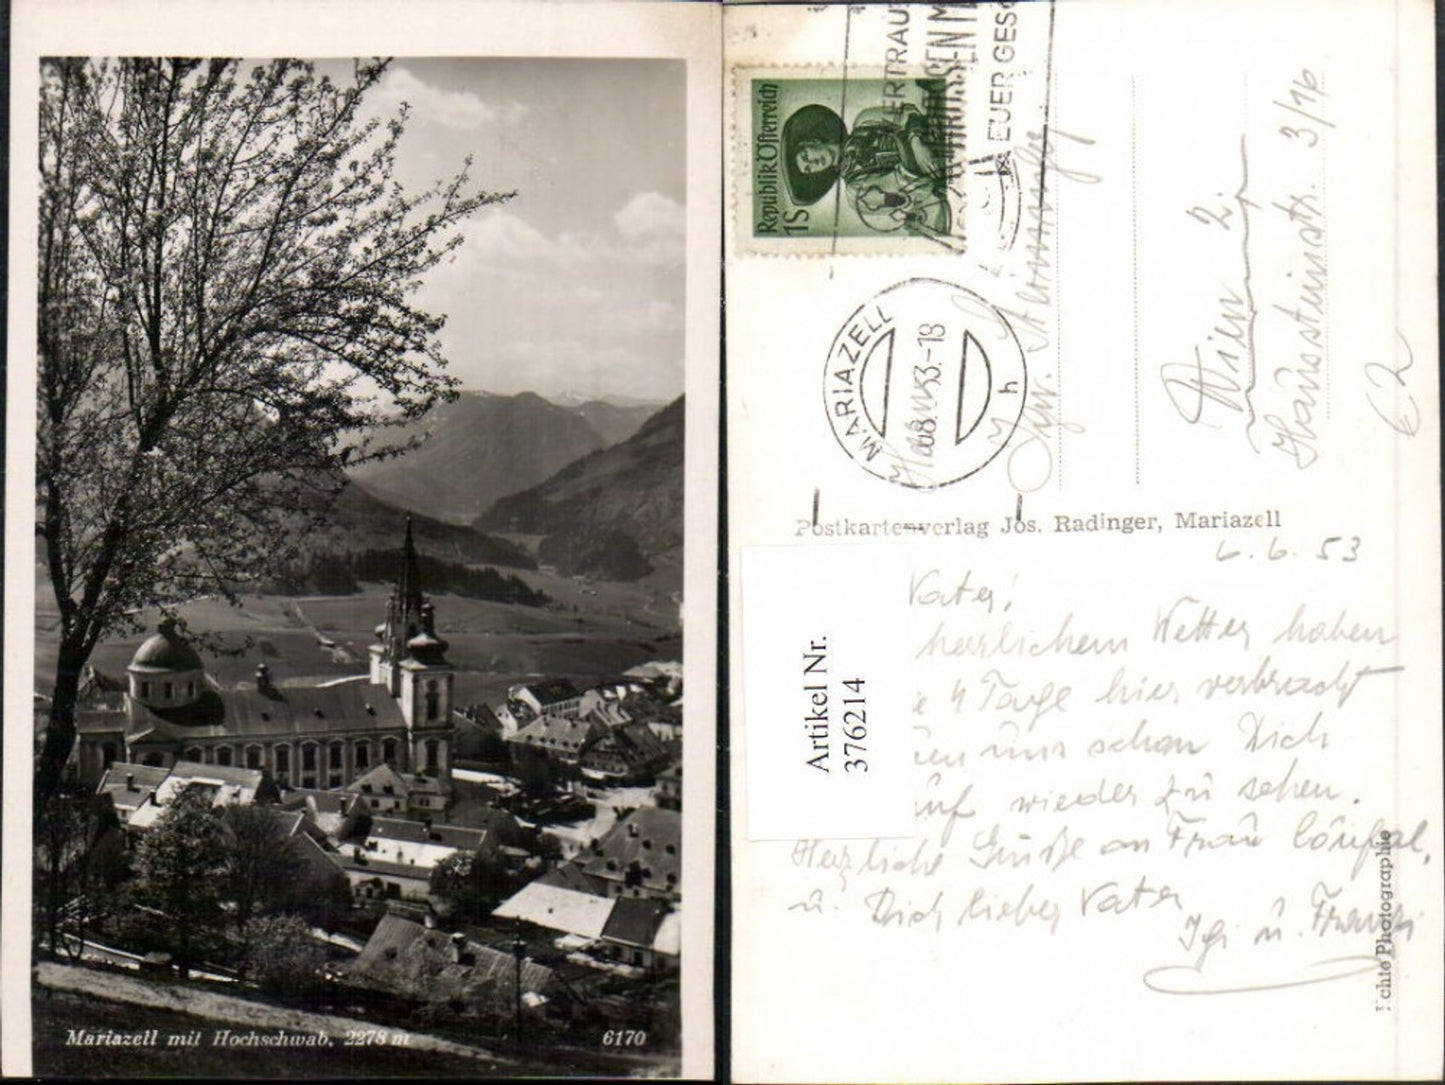 Mariazell mit Hochschwab, 2278 m
6170
Republik Österreich
1S
ERTRAU
EUER GES
MARIAZELL
53.-18
h
Wien 2.
Haussteinstr. 3/16
€2
Postkartenverlag Jos. Radinger, Mariazell
6. 6. 53
Artikel Nr.
376214
Vater!
herrlichem Wetter haben
e 4 Tage hier verbracht
uen uns schon Dich
auf wieder zu sehen.
Herzliche Grüße an Frau
u. Dich lieber Vater
u. Franzi
Echte Photographie